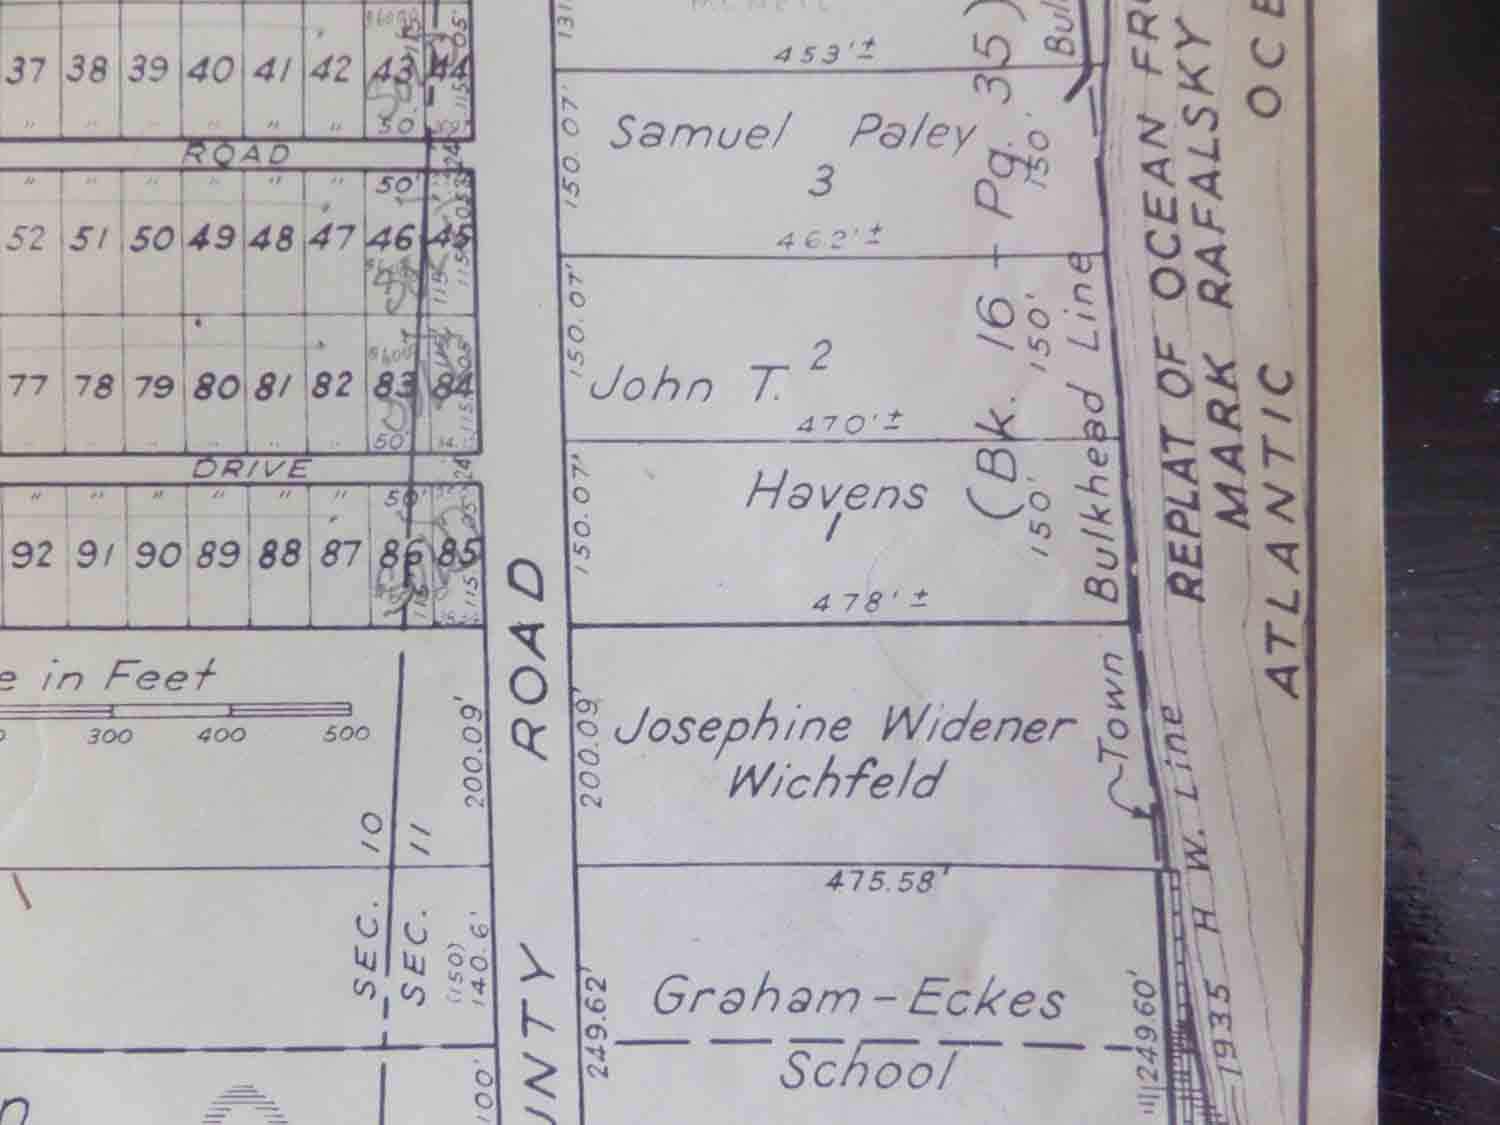 453'±
37 38 39 40 41 42 43 44
50'
ROAD
50'
52 51 50 49 48 47 46 45
77 78 79 80 81 82 83 84
50'
DRIVE
50'
92 91 90 89 88 87 86 85
e in Feet
300 400 500
SEC. 10
SEC. 11
200.09'
(150)
140.6'
100'
UNTY ROAD
150.07'
Samuel Paley
3
462'±
150.07'
John T. 2
470'±
150.07'
Havens
1
478'±
200.09'
Josephine Widener
Wichfeld
475.58'
249.62'
Graham-Eckes
School
249.60'
(Bk. 16 - Pg. 35)
150'
150'
150'
Bulkhead Line
Town
1935 H W. Line
REPLAT OF OCEAN FR
MARK RAFALSKY
ATLANTIC OCE